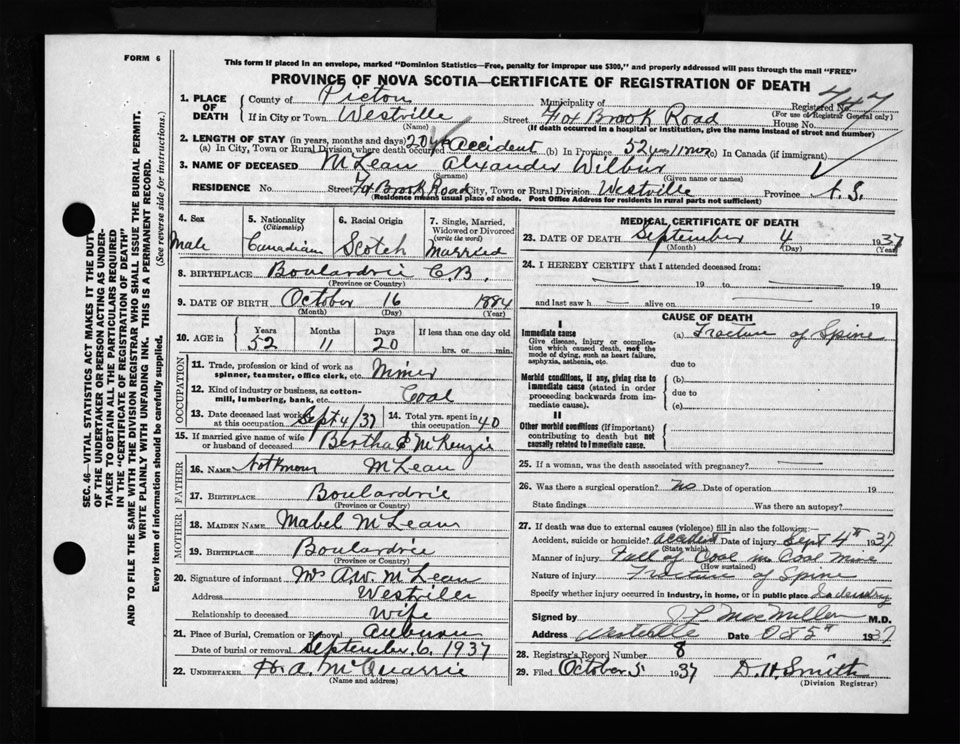 FORM 6
This form if placed in an envelope, marked "Dominion Statistics—Free, penalty for improper use $300," and properly addressed will pass through the mail "FREE"
PROVINCE OF NOVA SCOTIA—CERTIFICATE OF REGISTRATION OF DEATH
1. PLACE OF DEATH
County of Pictou Municipality of Registered No. 747
(For use of Registrar General only)
If in City or Town Westville Street Fox Brook Road House No.
(Name) (If death occurred in a hospital or institution, give the name instead of street and number)
2. LENGTH OF STAY (in years, months and days)
(a) In City, Town or Rural Division where death occurred 20 yrs Accident (b) In Province 52 yrs 11 mos (c) In Canada (if immigrant)
3. NAME OF DECEASED McLean Alexander Wilbur
(Surname) (Given name or names)
RESIDENCE No. Street Fox Brook Road City, Town or Rural Division Westville Province N.S.
(Residence means usual place of abode. Post Office Address for residents in rural parts not sufficient)
4. Sex Male
5. Nationality (Citizenship) Canadian
6. Racial Origin Scotch
7. Single, Married, Widowed or Divorced (write the word) Married
8. BIRTHPLACE Boulardrie C.B.
(Province or Country)
9. DATE OF BIRTH October 16 1884
(Month) (Day) (Year)
10. AGE in Years 52 Months 11 Days 20 If less than one day old hrs. or min.
OCCUPATION
11. Trade, profession or kind of work as spinner, teamster, office clerk, etc. Miner
12. Kind of industry or business, as cotton-mill, lumbering, bank, etc. Coal
13. Date deceased last worked at this occupation Sept 4/37
14. Total yrs. spent in this occupation 40
15. If married give name of wife or husband of deceased Bertha E McKenzie
FATHER
16. NAME Not Known McLean
17. BIRTHPLACE Boulardrie
(Province or Country)
MOTHER
18. MAIDEN NAME Mabel McLean
19. BIRTHPLACE Boulardrie
(Province or Country)
20. Signature of informant Mrs A.W. McLean
Address Westville
Relationship to deceased Wife
21. Place of Burial, Cremation or Removal Auburn
Date of burial or removal September 6, 1937
22. UNDERTAKER H.A. McQuarrie
(Name and address)
MEDICAL CERTIFICATE OF DEATH
23. DATE OF DEATH September 4 1937
(Month) (Day) (Year)
24. I HEREBY CERTIFY that I attended deceased from
19 to 19
and last saw h alive on 19
CAUSE OF DEATH
I
Immediate cause
Give disease, injury or complication which caused death, not the mode of dying, such as heart failure, asphyxia, asthenia, etc.
(a) Fracture of Spine
due to
Morbid conditions, if any, giving rise to immediate cause (stated in order proceeding backwards from immediate cause).
(b)
due to
(c)
II
Other morbid conditions (if important) contributing to death but not causally related to immediate cause.
25. If a woman, was the death associated with pregnancy?
26. Was there a surgical operation? no Date of operation 19
State findings Was there an autopsy?
27. If death was due to external causes (violence) fill in also the following:
Accident, suicide or homicide? accident Date of injury Sept 4th 1937
(State which)
Manner of injury Fall of Coal in Coal Mine
(How sustained)
Nature of injury Fracture of Spine
Specify whether injury occurred in industry, in home, or in public place Industry
Signed by MacMillan M.D.
Address Westville Date Oct 5th 1937
28. Registrar's Record Number 8
29. Filed October 5 1937 D.H. Smith
(Division Registrar)
SEC. 46—VITAL STATISTICS ACT MAKES IT THE DUTY
OF THE UNDERTAKER OR PERSON ACTING AS UNDER-
TAKER TO OBTAIN ALL THE PARTICULARS REQUIRED
IN THE "CERTIFICATE OF REGISTRATION OF DEATH"
AND TO FILE THE SAME WITH THE DIVISION REGISTRAR WHO SHALL ISSUE THE BURIAL PERMIT.
WRITE PLAINLY WITH UNFADING INK. THIS IS A PERMANENT RECORD.
Every item of information should be carefully supplied. (See reverse side for instructions.)